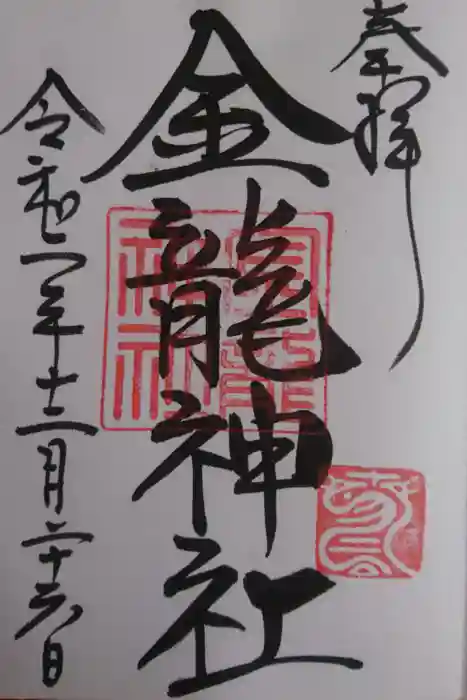 奉拝
金龍神社
令和二年十二月二十六日